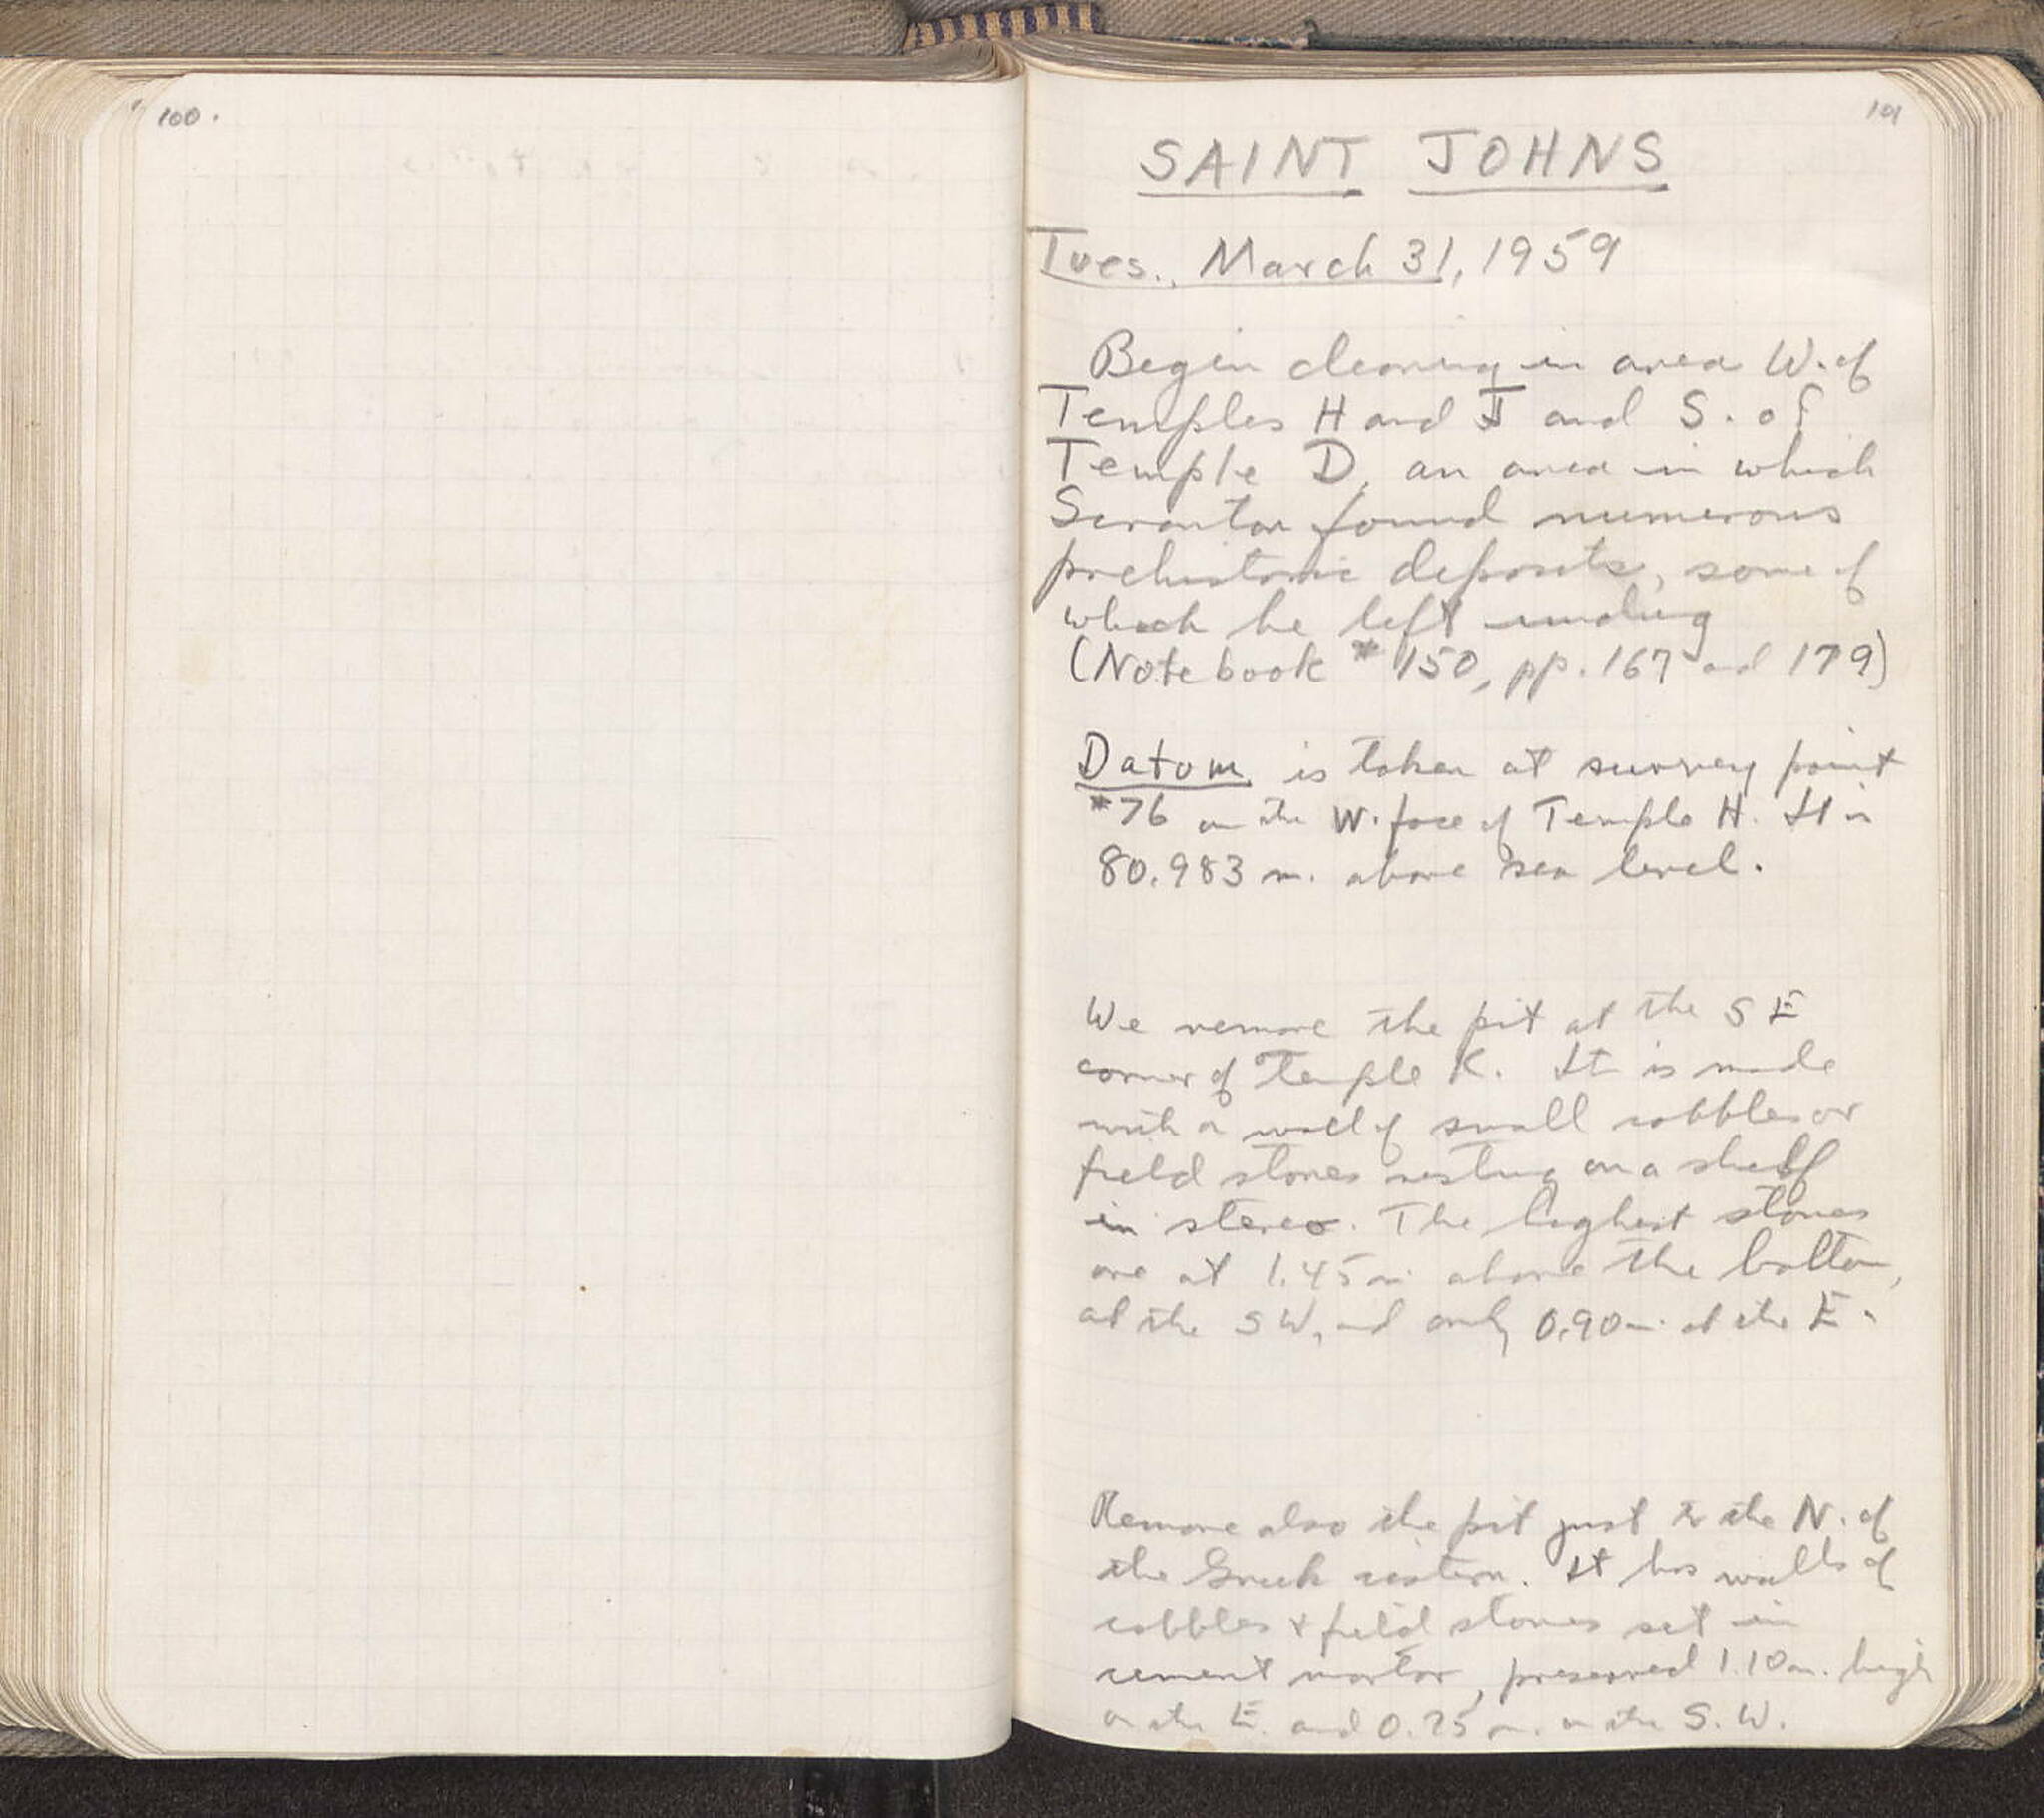 100.
101
SAINT JOHNS
Tues., March 31, 1959
Begin cleaning in area W. of
Temples H and J and S. of
Temple D, an area in which
Scranton found numerous
prehistoric deposits, some of
which he left undug
(Notebook #150, pp. 167 and 179)
Datum is taken at survey point
#76 on the W. face of Temple H. It is
80.983 m. above sea level.
We remove the pit at the SE
corner of Temple K. It is made
with a wall of small cobbles or
field stones resting on a shelf
in stereo. The highest stones
are at 1.45 m. above the bottom,
at the SW, and only 0.90 m. at the E.
Remove also the pit just to the N. of
the Greek cistern. It has walls of
cobbles + field stones set in
cement mortar, preserved 1.10 m. high
on the E. and 0.75 m. on the S.W.